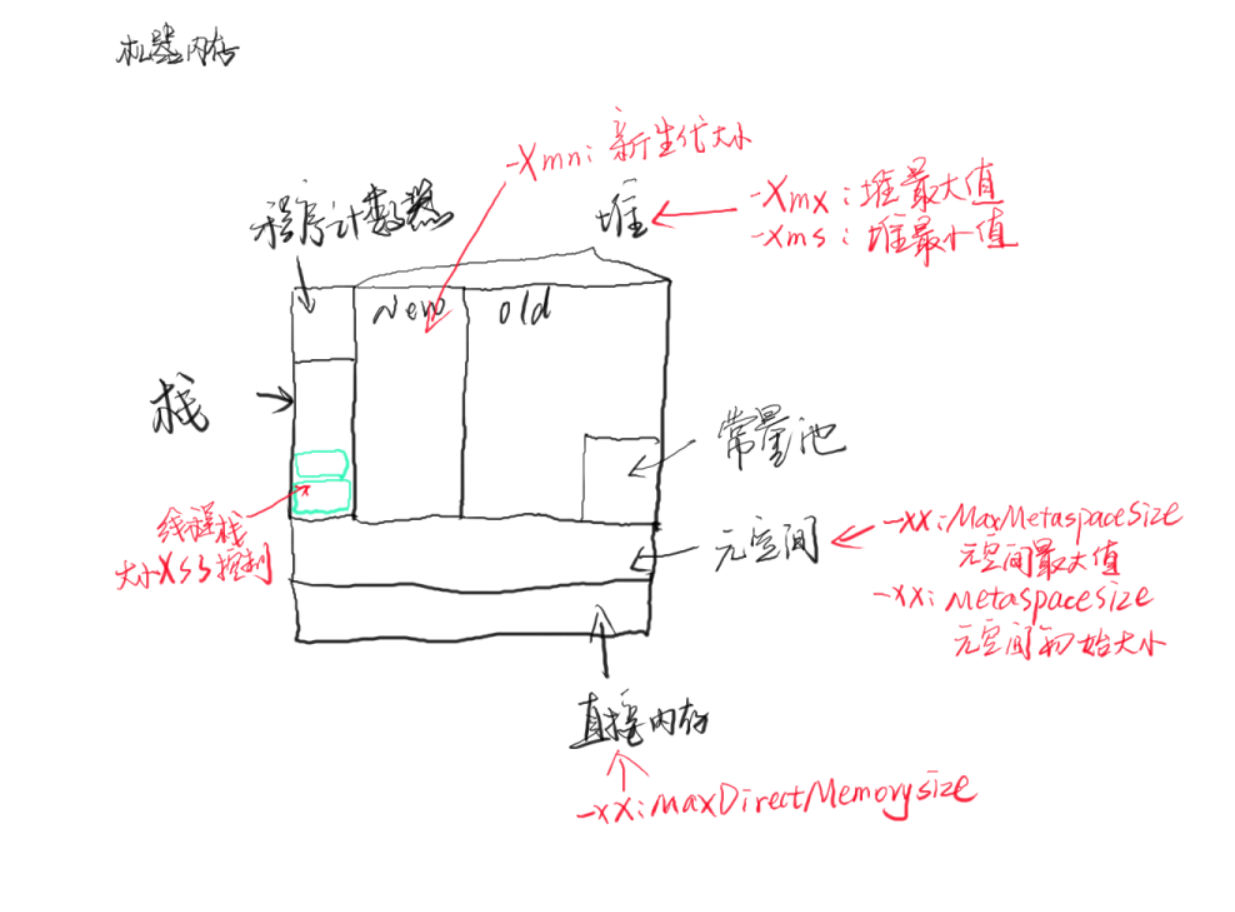 机器内存
-Xmn: 新生代大小
程序计数器
堆
-Xmx: 堆最大值
-Xms: 堆最小值
New
old
栈
常量池
线程栈
大小Xss控制
元空间
-XX:MaxMetaspaceSize
元空间最大值
-XX: Metaspacesize
元空间初始大小
直接内存
-XX:MaxDirectMemorysize